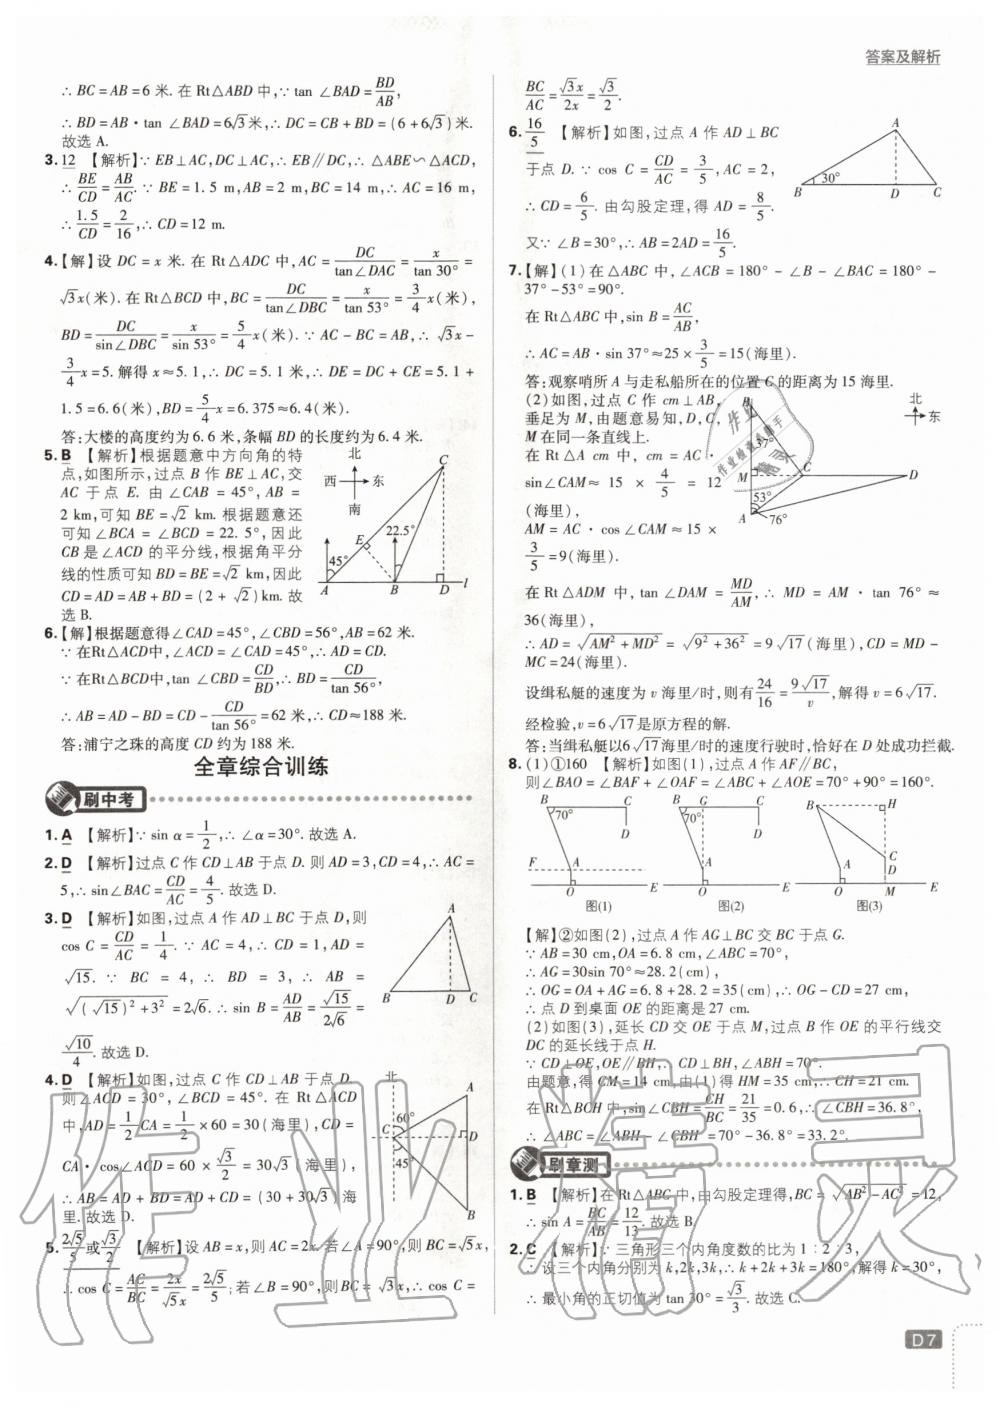 答案及解析
∴ BC=AB=6 米. 在 Rt△ABD 中,∵ tan ∠BAD=BD/AB,
∴ BD=AB·tan ∠BAD=6√3米,∴ DC=CB+BD=(6+6√3)米.
故选 A.
3. 12 【解析】∵ EB⊥AC,DC⊥AC,∴ EB∥DC,∴ △ABE∽△ACD,
∴ BE/CD=AB/AC. ∵ BE=1.5 m,AB=2 m,BC=14 m,∴ AC=16 m,
∴ 1.5/CD=2/16,∴ CD=12 m.
4.【解】设 DC=x 米. 在 Rt△ADC 中,AC=DC/tan∠DAC=x/tan 30°=
√3x(米). 在 Rt△BCD 中,BC=DC/tan∠DBC=x/tan 53°=3/4x(米),
BD=DC/sin∠DBC=x/sin 53°=5/4x(米). ∵ AC-BC=AB,∴ √3x-
3/4x=5. 解得 x≈5.1,∴ DC=5.1 米,∴ DE=DC+CE=5.1+
1.5=6.6(米),BD=5/4x=6.375≈6.4(米).
答:大楼的高度约为 6.6 米,条幅 BD 的长度约为 6.4 米.
5. B 【解析】根据题意中方向角的特
点,如图所示,过点 B 作 BE⊥AC,交
AC 于点 E. 由 ∠CAB=45°,AB=
2 km,可知 BE=√2 km. 根据题意还
可知∠BCA=∠BCD=22.5°,因此
CB 是∠ACD 的平分线,根据角平分
线的性质可知 BD=BE=√2 km,因此
CD=AD=AB+BD=(2+√2)km. 故
选 B.
北
西 东
南
C
E
22.5°
45°
A B D l
6.【解】根据题意得∠CAD=45°,∠CBD=56°,AB=62 米.
∵ 在Rt△ACD中,∠ACD=∠CAD=45°,∴ AD=CD.
∵ 在Rt△BCD中,tan ∠CBD=CD/BD,∴ BD=CD/tan 56°,
∴ AB=AD-BD=CD-CD/tan 56°=62 米,∴ CD≈188 米.
答:浦宁之珠的高度 CD 约为 188 米.
全章综合训练
刷中考
1. A 【解析】∵ sin α=1/2,∴ ∠α=30°. 故选 A.
2. D 【解析】过点 C 作 CD⊥AB 于点 D. 则 AD=3,CD=4,∴ AC=
5,∴ sin∠BAC=CD/AC=4/5. 故选 D.
3. D 【解析】如图,过点 A 作 AD⊥BC 于点 D,则
cos C=CD/AC=1/4. ∵ AC=4,∴ CD=1,AD=
√15. ∵ BC=4,∴ BD=3,∴ AB=
√((√15)²+3²)=2√6. ∴ sin B=AD/AB=√15/2√6=
√10/4. 故选 D.
A
B D C
4. D 【解析】如图,过点 C 作 CD⊥AB 于点 D,
则∠ACD=30°,∠BCD=45°. 在 Rt△ACD
中,AD=1/2CA=1/2×60=30(海里),CD=
CA·cos∠ACD=60×√3/2=30√3(海里),
∴ AB=AD+BD=AD+CD=(30+30√3)海
里. 故选 D.
北
A
60°
C D
45°
B
5. 2√5/5或√3/2 【解析】设 AB=x,则 AC=2x. 若∠A=90°,则 BC=√5x,
∴ cos C=AC/BC=2x/√5x=2√5/5;若∠B=90°,则BC=√3x,∴ cos C=
BC/AC=√3x/2x=√3/2.
6. 16/5 【解析】如图,过点 A 作 AD⊥BC
于点 D. ∵ cos C=CD/AC=3/5,AC=2,
∴ CD=6/5. 由勾股定理,得 AD=8/5.
又∵ ∠B=30°,∴ AB=2AD=16/5.
A
B 30° D C
7.【解】(1)在△ABC 中,∠ACB=180°-∠B-∠BAC=180°-
37°-53°=90°.
在 Rt△ABC 中,sin B=AC/AB,
∴ AC=AB·sin 37°≈25×3/5=15(海里).
答:观察哨所 A 与走私船所在的位置 C 的距离为 15 海里.
(2)如图,过点 C 作 cm⊥AB,
垂足为 M,由题意易知,D,C,
M 在同一条直线上.
在 Rt△A cm 中,cm=AC·
sin∠CAM≈15×4/5=12
(海里),
AM=AC·cos∠CAM≈15×
3/5=9(海里).
北
东
B
37°
M C D
53°
A 76°
在 Rt△ADM 中,tan ∠DAM=MD/AM,∴ MD=AM·tan 76°≈
36(海里),
∴ AD=√(AM²+MD²)=√(9²+36²)=9√17(海里),CD=MD-
MC=24(海里).
设缉私艇的速度为 v 海里/时,则有24/16=9√17/v,解得 v=6√17.
经检验,v=6√17是原方程的解.
答:当缉私艇以6√17海里/时的速度行驶时,恰好在 D 处成功拦截.
8. (1)①160 【解析】如图(1),过点 A 作 AF∥BC,
则∠BAO=∠BAF+∠OAF=∠ABC+∠AOE=70°+90°=160°.
B C
70° D
F A
O E
图(1)
B G C
70° D
A
O E
图(2)
B H
C
A D
O M E
图(3)
【解】②如图(2),过点 A 作 AG⊥BC 交 BC 于点 G.
∵ AB=30 cm,OA=6.8 cm,∠ABC=70°,
∴ AG=30sin 70°≈28.2(cm),
∴ OG=OA+AG=6.8+28.2=35(cm),∴ OG-CD=27(cm),
∴ 点 D 到桌面 OE 的距离是 27 cm.
(2)如图(3),延长 CD 交 OE 于点 M,过点 B 作 OE 的平行线交
DC 的延长线于点 H.
∵ CD⊥OE,OE∥BH,∴ CD⊥BH,∠ABH=70°.
由题意,得 CM=14 cm,由(1)得 HM=35 cm,∴ CH=21 cm.
在 Rt△BCH 中,sin ∠CBH=CH/BC=21/35=0.6,∴ ∠CBH=36.8°,
∴ ∠ABC=∠ABH-∠CBH=70°-36.8°=33.2°.
刷章测
1. B 【解析】在 Rt△ABC 中,由勾股定理得,BC=√(AB²-AC²)=12,
∴ sin A=BC/AB=12/13. 故选 B.
2. C 【解析】∵ 三角形三个内角度数的比为 1∶2∶3,
∴ 设三个内角分别为 k,2k,3k,∴ k+2k+3k=180°,解得 k=30°,
∴ 最小角的正切值为 tan 30°=√3/3. 故选 C.
D7
作业精灵